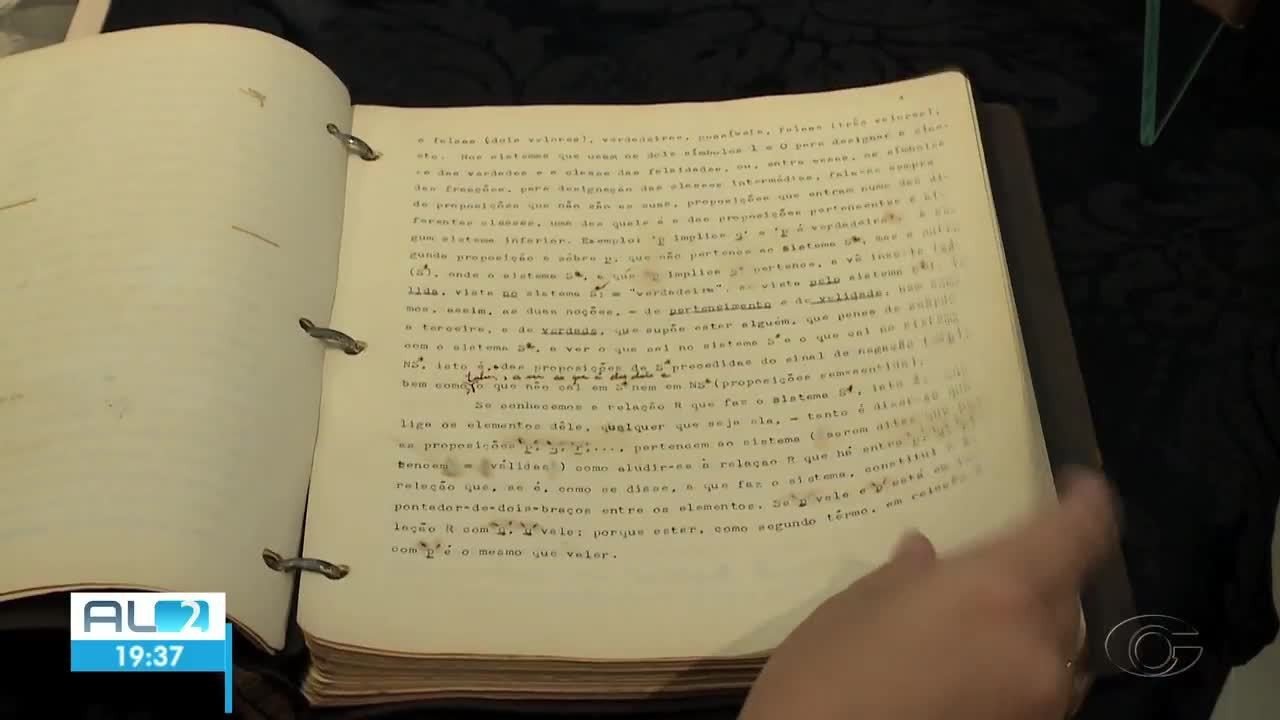 e falsas (dois valores), verdadeiras, possíveis, falsas (três valores),
etc. Nos sistemas que usam os dois símbolos 1 e 0 para designar a clas-
se das verdades e a classe das falsidades, ou, entre esses, os símbolos
das frações, para designação das classes intermédias, fala-se sempre
de proposições que não são as suas, proposições que entram numa das di-
ferentes classes, uma das quais é a das proposições pertencentes a al-
gum sistema inferior. Exemplo: 'p implica q' e 'p é verdadeira'. A se-
gunda proposição é sôbre p, que não pertence ao sistema S
(S'), onde o sistema S a que p implica pertence, e vê
lida, vista no sistema S; = "verdadeira", se vista pelo sistema
mos, assim, as duas noções, – de pertencimento e de validade;
a terceira, a de verdade, que supõe ester alguém, que pensa de acôrdo
com o sistema S, a ver o que cai no sistema S e o que cai no sistema
NS, isto é, das proposições de S precedidas do sinal de negação
bem como o que não cai em S nem em NS (proposições sem-sentido).
Se conhecemos a relação R que faz o sistema S, isto é,
liga os elementos dêle, qualquer que seja ela, – tanto é dizer-se que
as proposições 'p', 'q', 'r',..., pertencem ao sistema ( serem ditas que per-
tencem = válidas ) como aludir-se à relação R que há entre
relação que, se é, como se disse, a que faz o sistema, constitui
pontador-de-dois-braços entre os elementos. Se 'p' vale e 'p' está em re-
lação R com 'q', 'q' vale; porque ester, como segundo têrmo, em relação
com 'p' é o mesmo que valer.
AL2
19:37